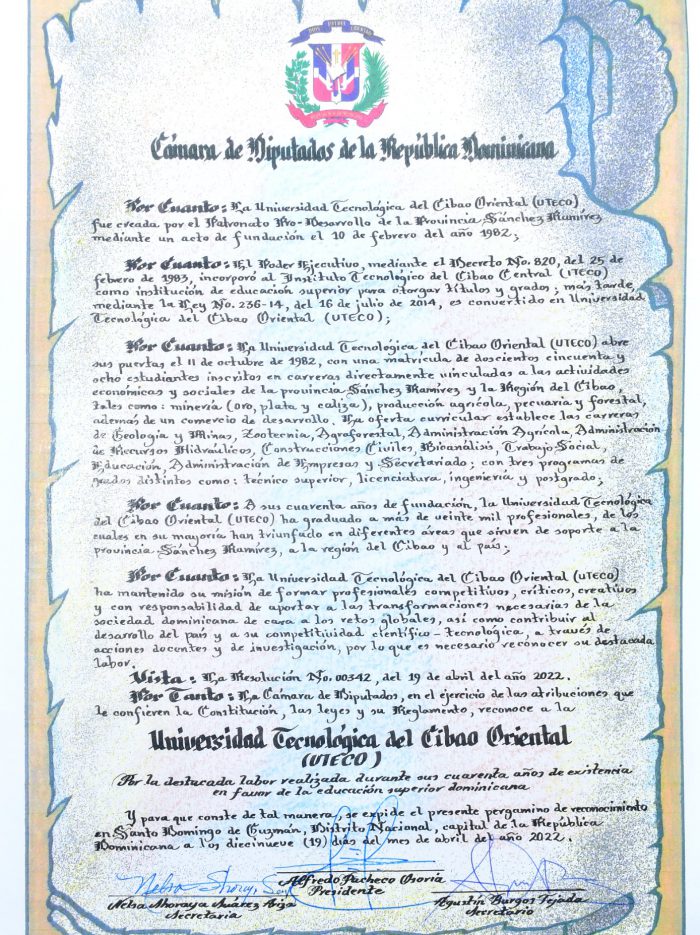 DIOS PATRIA LIBERTAD
Cámara de Diputados de la República Dominicana
Por Cuanto: La Universidad Tecnológica del Cibao Oriental (UTECO)
fue creada por el Patronato Pro-Desarrollo de la Provincia Sánchez Ramírez
mediante un acto de fundación el 10 de febrero del año 1982;
Por Cuanto: El Poder Ejecutivo, mediante el Decreto No. 820, del 25 de
febrero de 1983, incorporó al Instituto Tecnológico del Cibao Central (ITECO)
como institución de educación superior para otorgar títulos y grados; más tarde,
mediante la Ley No. 236-14, del 16 de julio de 2014, es convertido en Universidad
Tecnológica del Cibao Oriental (UTECO);
Por Cuanto: La Universidad Tecnológica del Cibao Oriental (UTECO) abre
sus puertas el 11 de octubre de 1982, con una matrícula de doscientos cincuenta y
ocho estudiantes inscritos en carreras directamente vinculadas a las actividades
económicas y sociales de la provincia Sánchez Ramírez y la Región del Cibao,
tales como: minería (oro, plata y caliza), producción agrícola, pecuaria y forestal,
además de un comercio de desarrollo. La oferta curricular establece las carreras
de Geología y Minas, Zootecnia, Agroforestal, Administración Agrícola, Administración
de Recursos Hidráulicos, Construcciones Civiles, Bioanálisis, Trabajo Social,
Educación, Administración de Empresas y Secretariado; con tres programas de
grados distintos como: técnico superior, licenciatura, ingeniería y postgrado;
Por Cuanto: A sus cuarenta años de fundación, la Universidad Tecnológica
del Cibao Oriental (UTECO) ha graduado a más de veinte mil profesionales, de los
cuales en su mayoría han triunfado en diferentes áreas que sirven de soporte a la
provincia Sánchez Ramírez, a la región del Cibao y al país;
Por Cuanto: La Universidad Tecnológica del Cibao Oriental (UTECO)
ha mantenido su misión de formar profesionales competitivos, críticos, creativos
y con responsabilidad de aportar a las transformaciones necesarias de la
sociedad dominicana de cara a los retos globales, así como contribuir al
desarrollo del país y a su competitividad científico-tecnológica, a través de
acciones docentes y de investigación, por lo que es necesario reconocer su destacada
labor.
Vista: La Resolución No. 00342, del 19 de abril del año 2022.
Por Tanto: La Cámara de Diputados, en el ejercicio de las atribuciones que
le confieren la Constitución, las leyes y su Reglamento, reconoce a la
Universidad Tecnológica del Cibao Oriental
(UTECO)
Por la destacada labor realizada durante sus cuarenta años de existencia
en favor de la educación superior dominicana
Y para que conste de tal manera, se expide el presente pergamino de reconocimiento
en Santo Domingo de Guzmán, Distrito Nacional, capital de la República
Dominicana a los diecinueve (19) días del mes de abril del año 2022.
Alfredo Pacheco Osoria
Presidente
Nelsa Shoraya Suárez Ariza
Secretaria
Agustín Burgos Tejada
Secretario